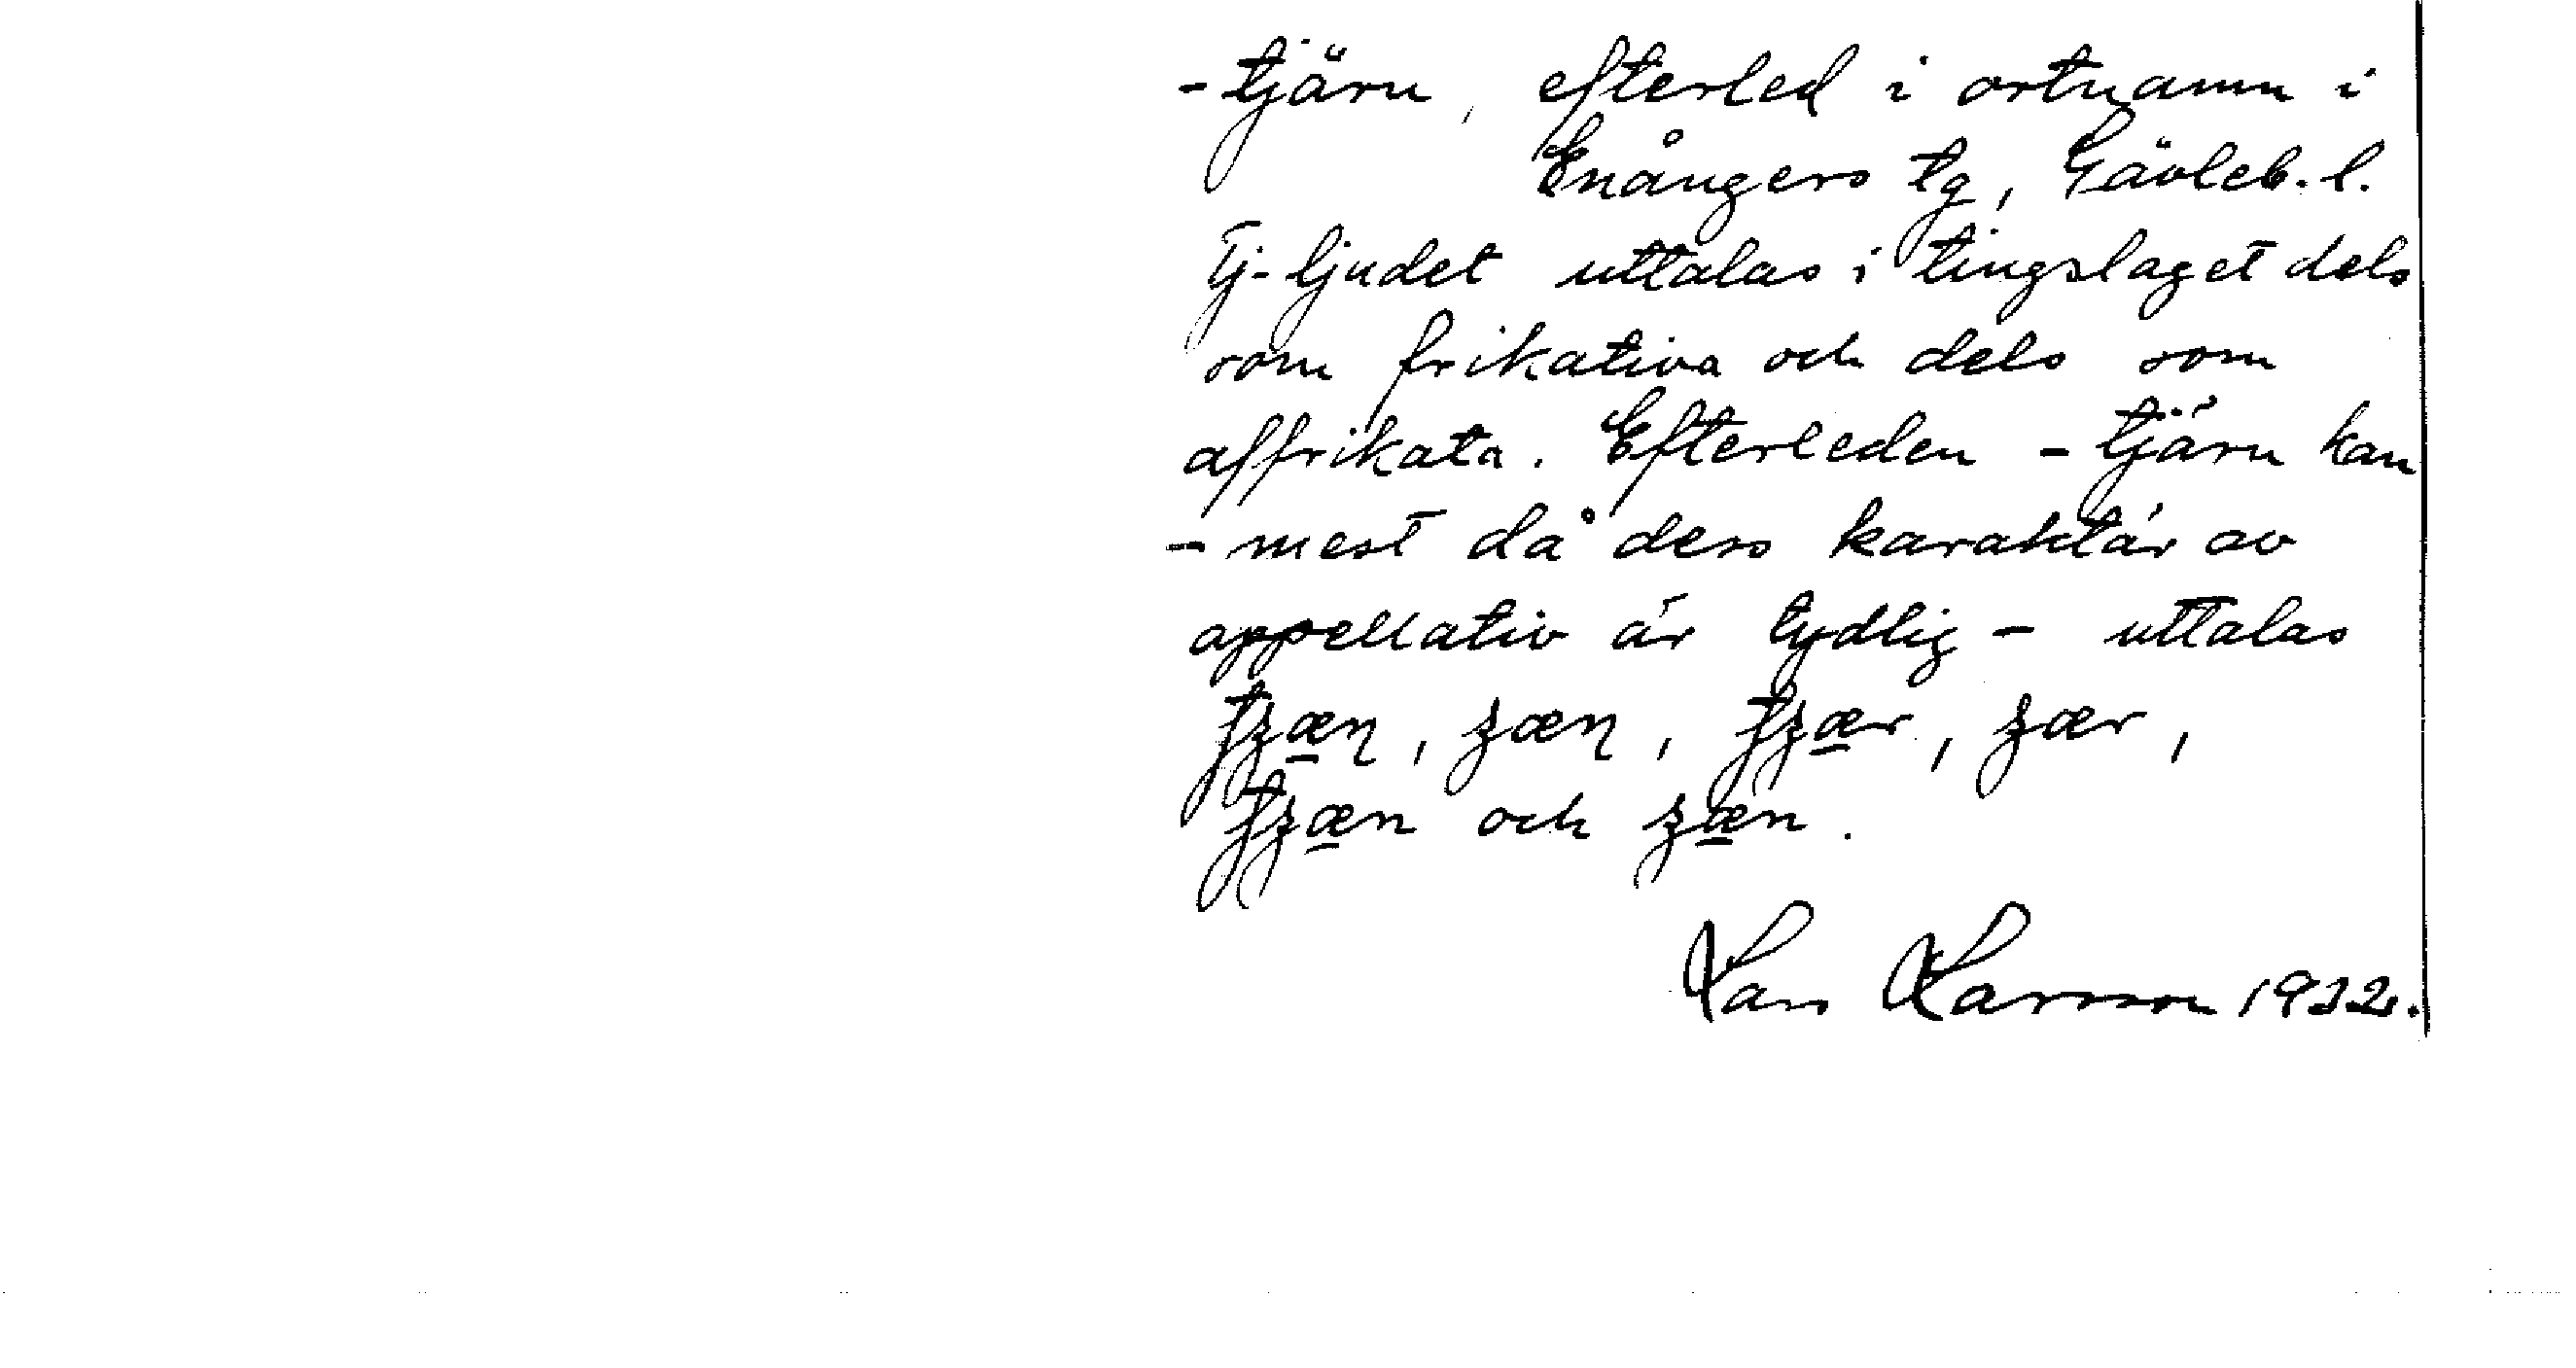 -tjärn, efterled i ortnamn i
Enångers tg, Gävleb. l.
Tj-ljudet uttalas i tingslaget dels
som frikativa och dels som
affrikata. Efterleden -tjärn kan
- mest då dess karaktär av
appellativ är tydlig - uttalas
och
Lars Larsson 1932.